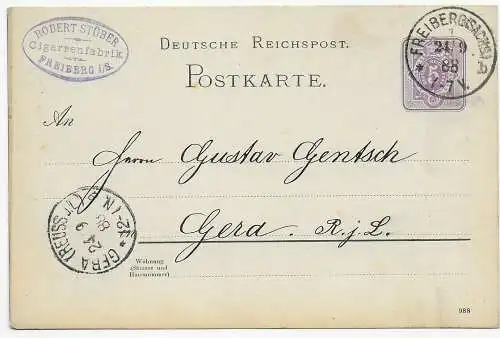 ROBERT STÖBER
Cigarrenfabrik
FREIBERG i/S.
DEUTSCHE REICHSPOST.
POSTKARTE.
FREIBERG (SACHSEN)
24 9
88
7
An
Herrn Gustav Gentsch
Gera R. j. L.
GERA (REUSS)
24 9
88
12-1N.
Wohnung
(Strasse und
Hausnummer)
988